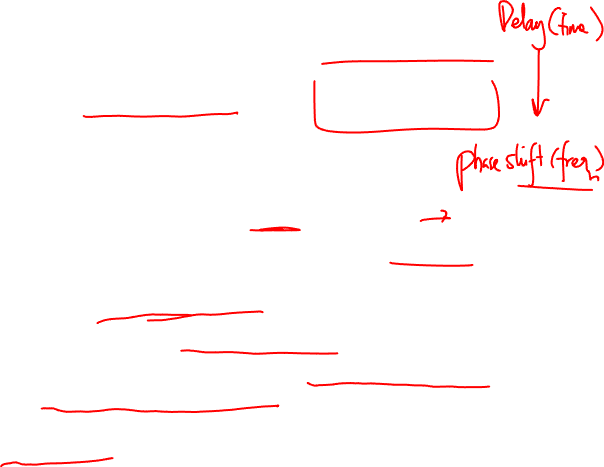 Delay (time)
phase shift (freq)